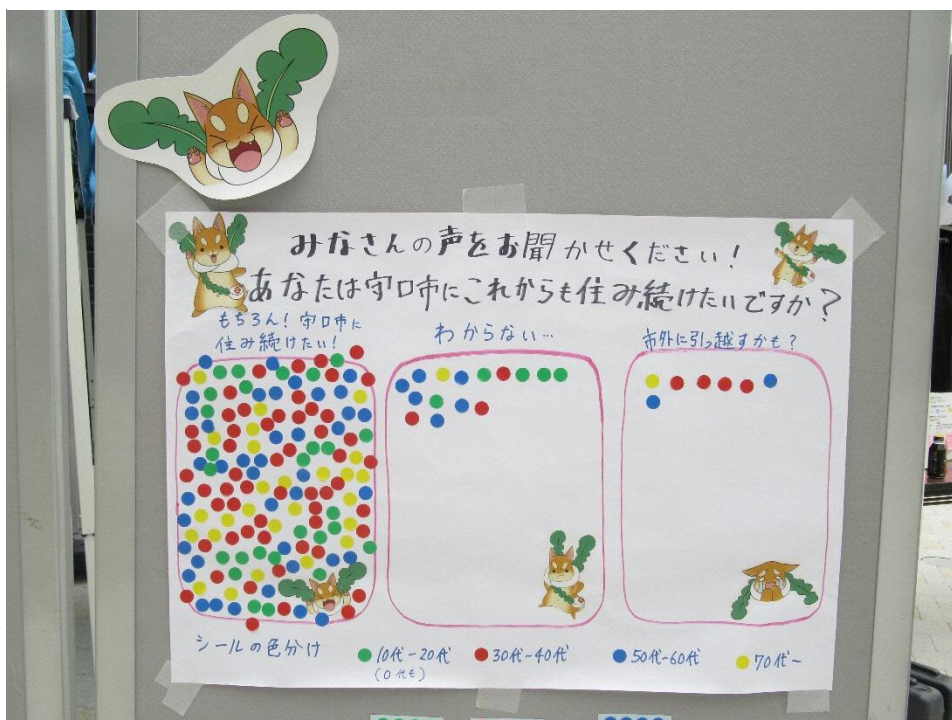 みなさんの声をお聞かせください!
あなたは守口市にこれからも住み続けたいですか?
もちろん!守口市に
住み続けたい!
わからない…
市外に引っ越すかも?
シールの色分け
10代-20代
(0代も)
30代-40代
50代-60代
70代~